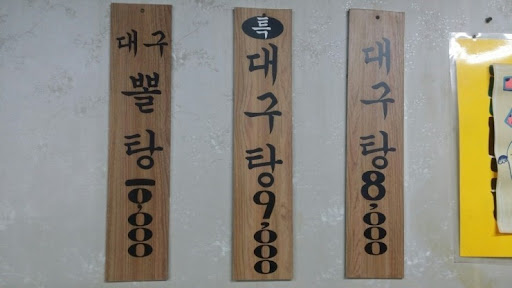 대구뽈탕 10,000
특 대구탕 9,000
대구탕 8,000